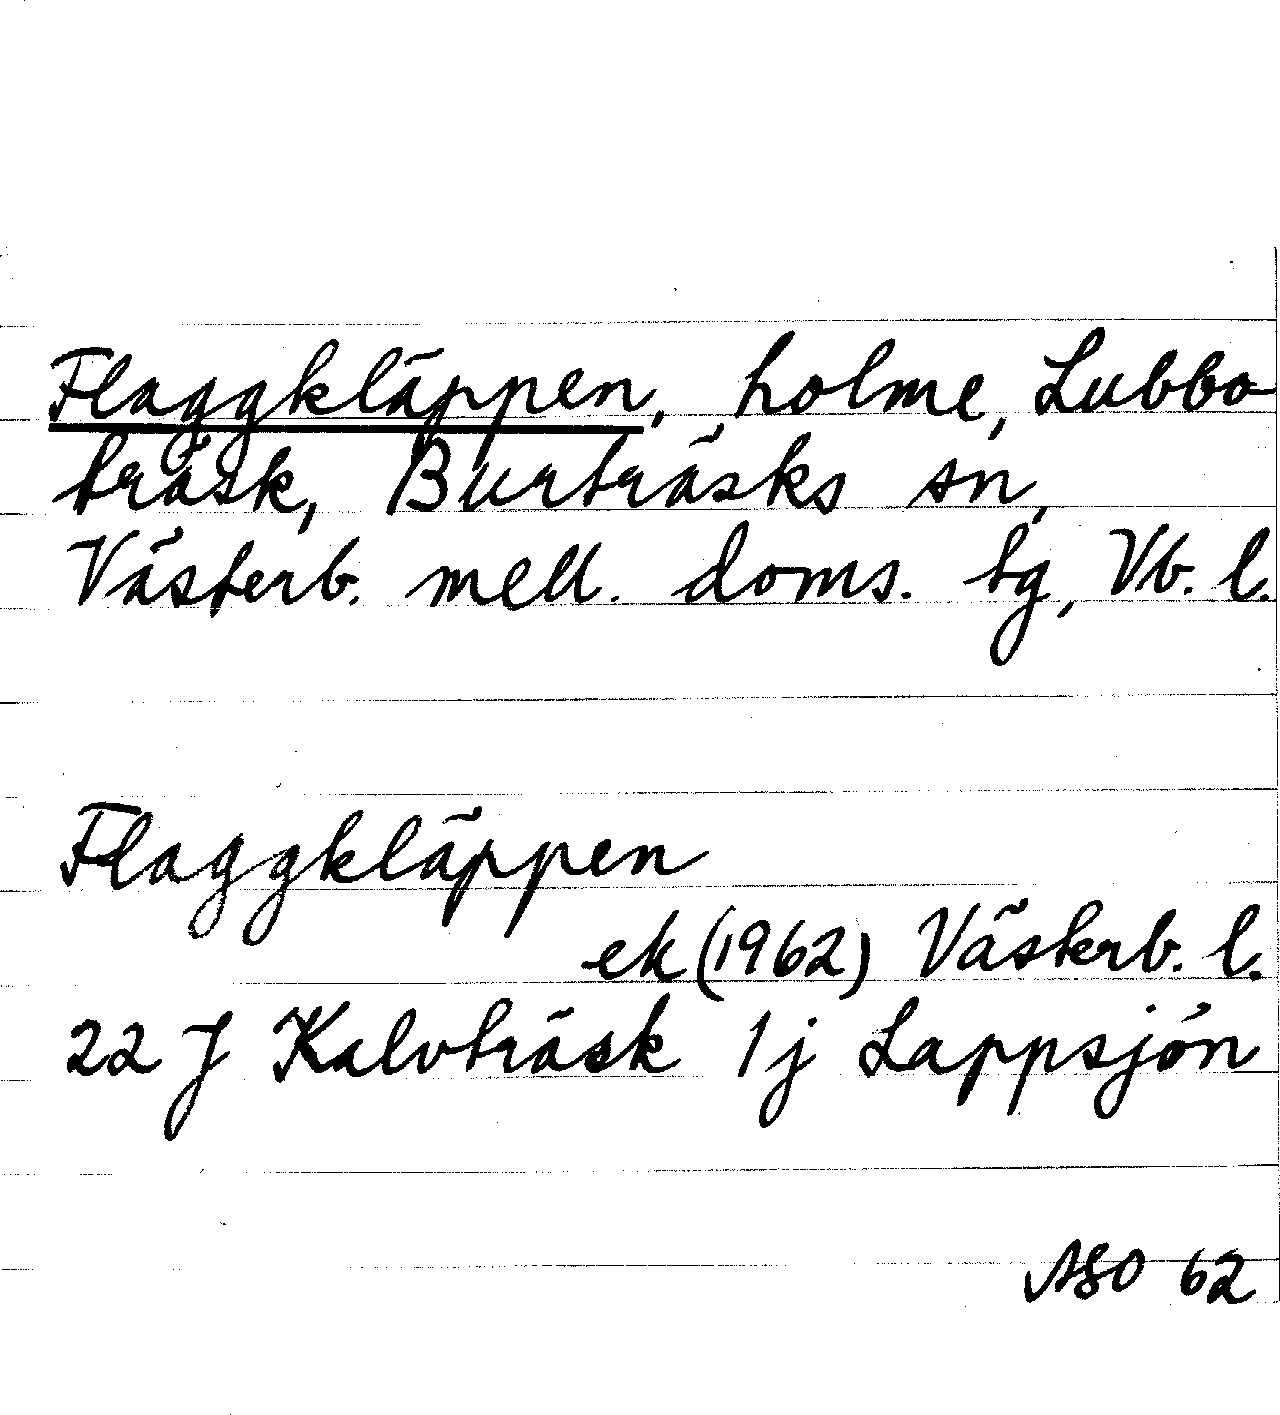 Flaggkläppen, holme, Lubbo
träsk, Burträsks sn,
Västerb. mell. doms. tg, Vb. l.
Flaggkläppen
ek (1962) Västerb. l.
22 J Kalvträsk 1j Lappsjön
ASO 62